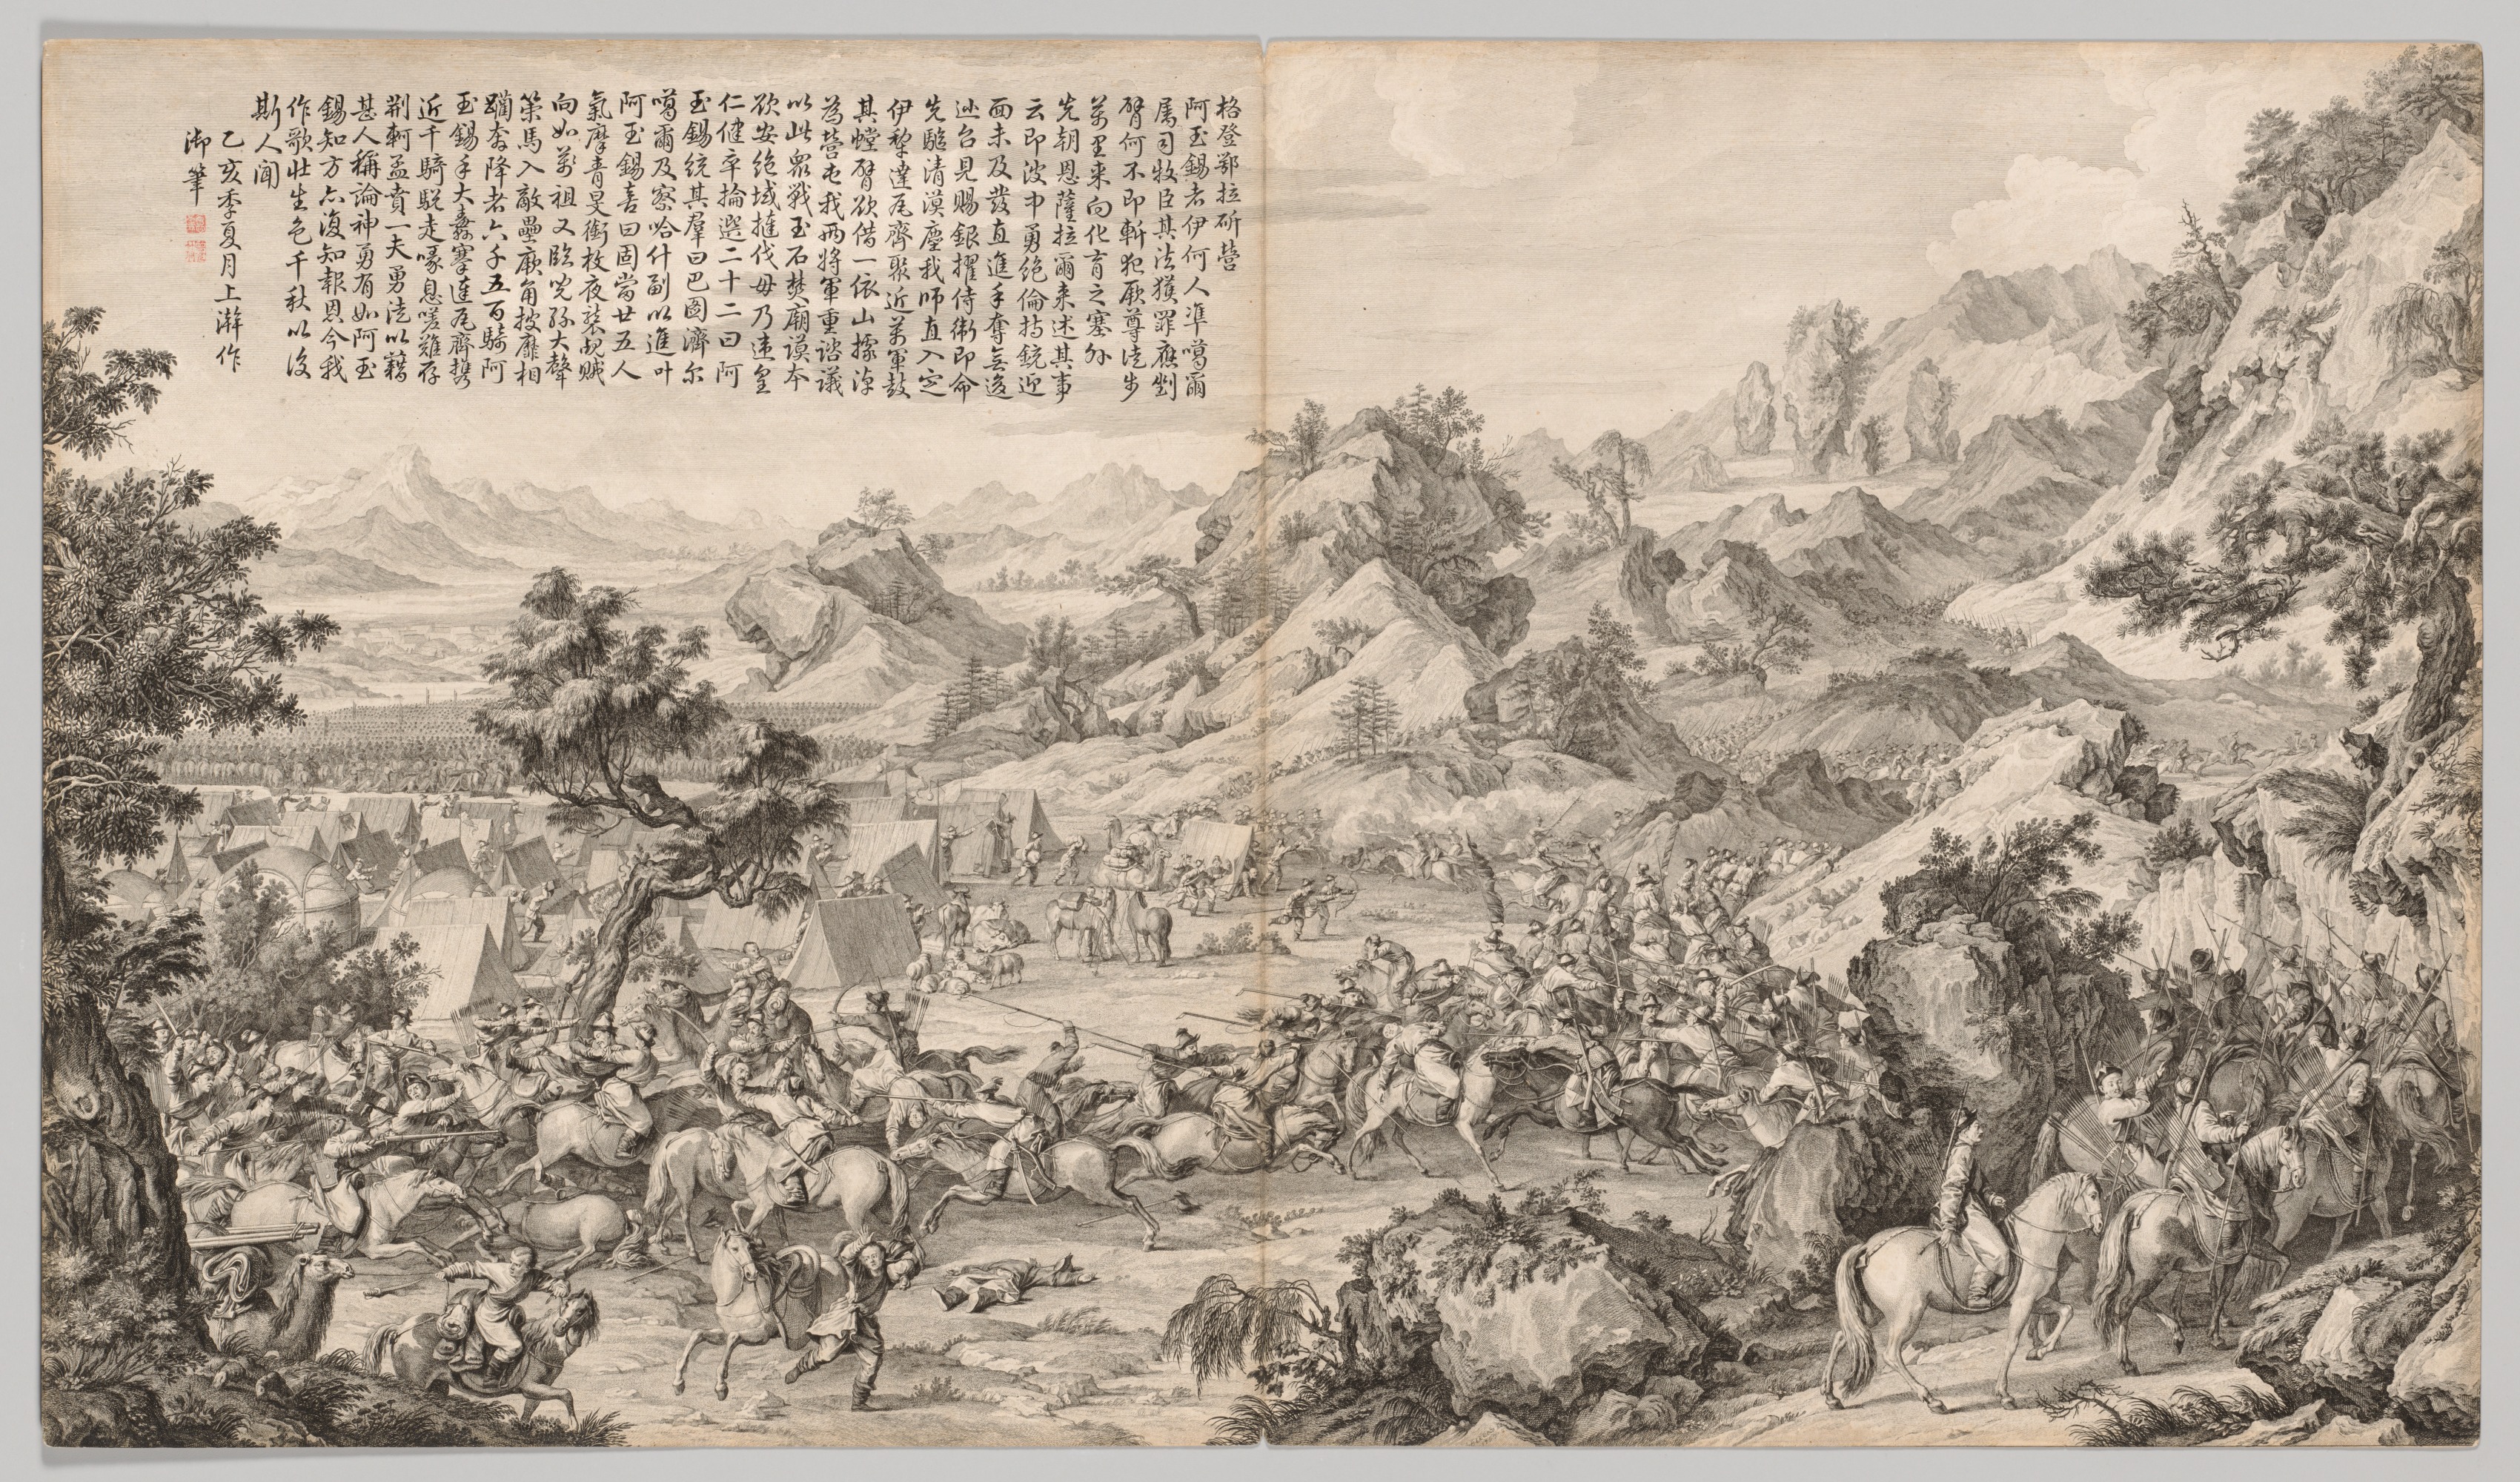 格登鄂拉斫营
阿玉錫者伊何人準噶爾
属司牧臣其法獲罪應剉
臂何不即斬犯厥尊徒步
萬里来向化育之塞外
先朝恩薩拉爾来述其事
云即彼中勇絶倫持銃迎
面未及發直進手奪無逡
巡召見賜銀擢侍衛即命
先驅清漠塵我師直入定
伊犂達瓦齊聚近萬軍鼓
其螳臂欲借一依山據淖
為营屯我兩將軍重諮議
以此衆戰玉石焚廟謨本
欲安絶域摧伐毋乃違皇
仁健卒掄選二十二曰阿
玉錫統其羣曰巴圖濟尔
噶爾及察哈什副以進叶
阿玉錫喜曰固當廿五人
氣摩青旻銜枚夜襲覘賊
向如萬祖又臨兇孫大聲
策馬入敵壘厥角披靡相
躏奔降者六千五百騎阿
玉錫手大纛搴達瓦齊携
近千騎駾走喙息嗟難存
荆軻孟賁一夫勇徒以藉
甚人稱論神勇有如阿玉
錫知方亦復知報恩今我
作歌壮生色千秋以後
斯人聞
乙亥季夏月上澣作
御筆